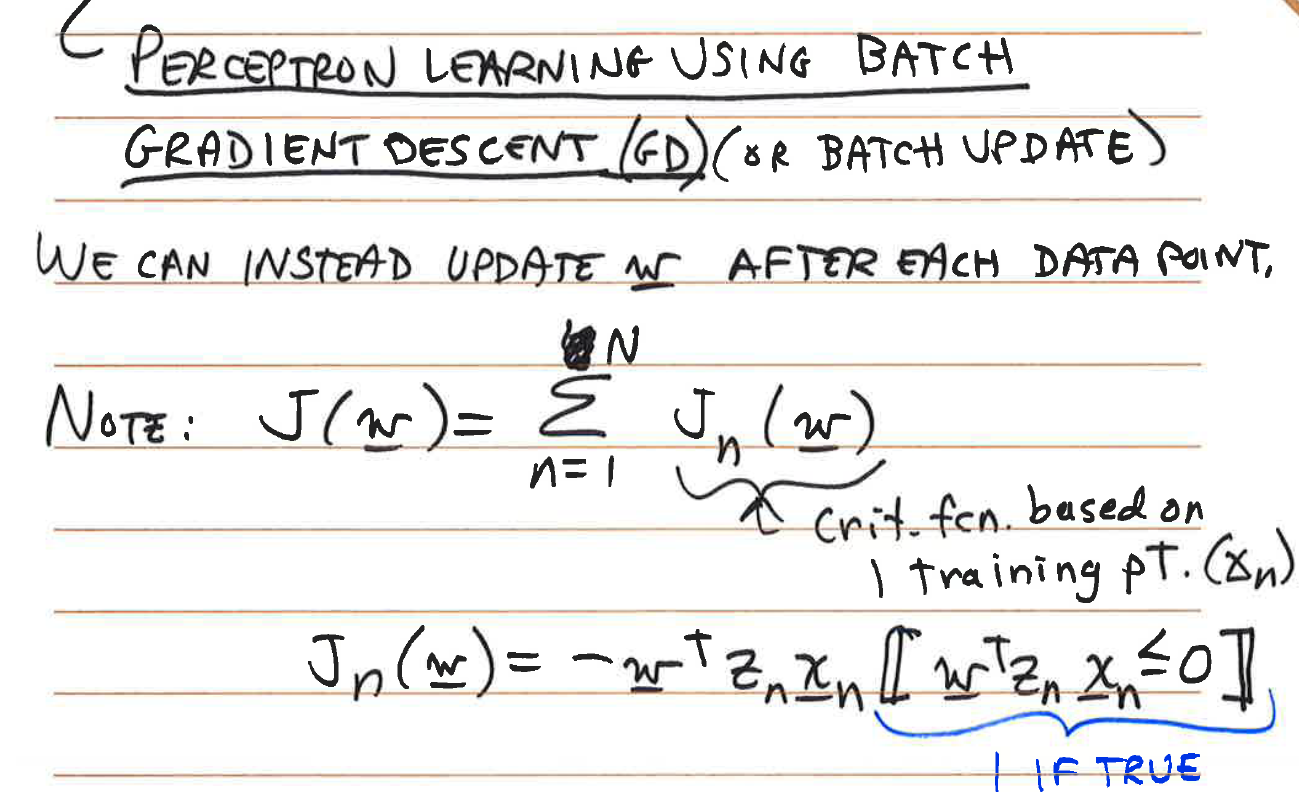 PERCEPTRON LEARNING USING BATCH
GRADIENT DESCENT (GD) (OR BATCH UPDATE)
WE CAN INSTEAD UPDATE w AFTER EACH DATA POINT.
N
NOTE: J(w) = Σ J_n(w)
n=1
crit. fcn. based on
1 training pt. (x_n)
J_n(w) = -w^T z_n x_n ⟦ w^T z_n x_n ≤ 0 ⟧
1 IF TRUE